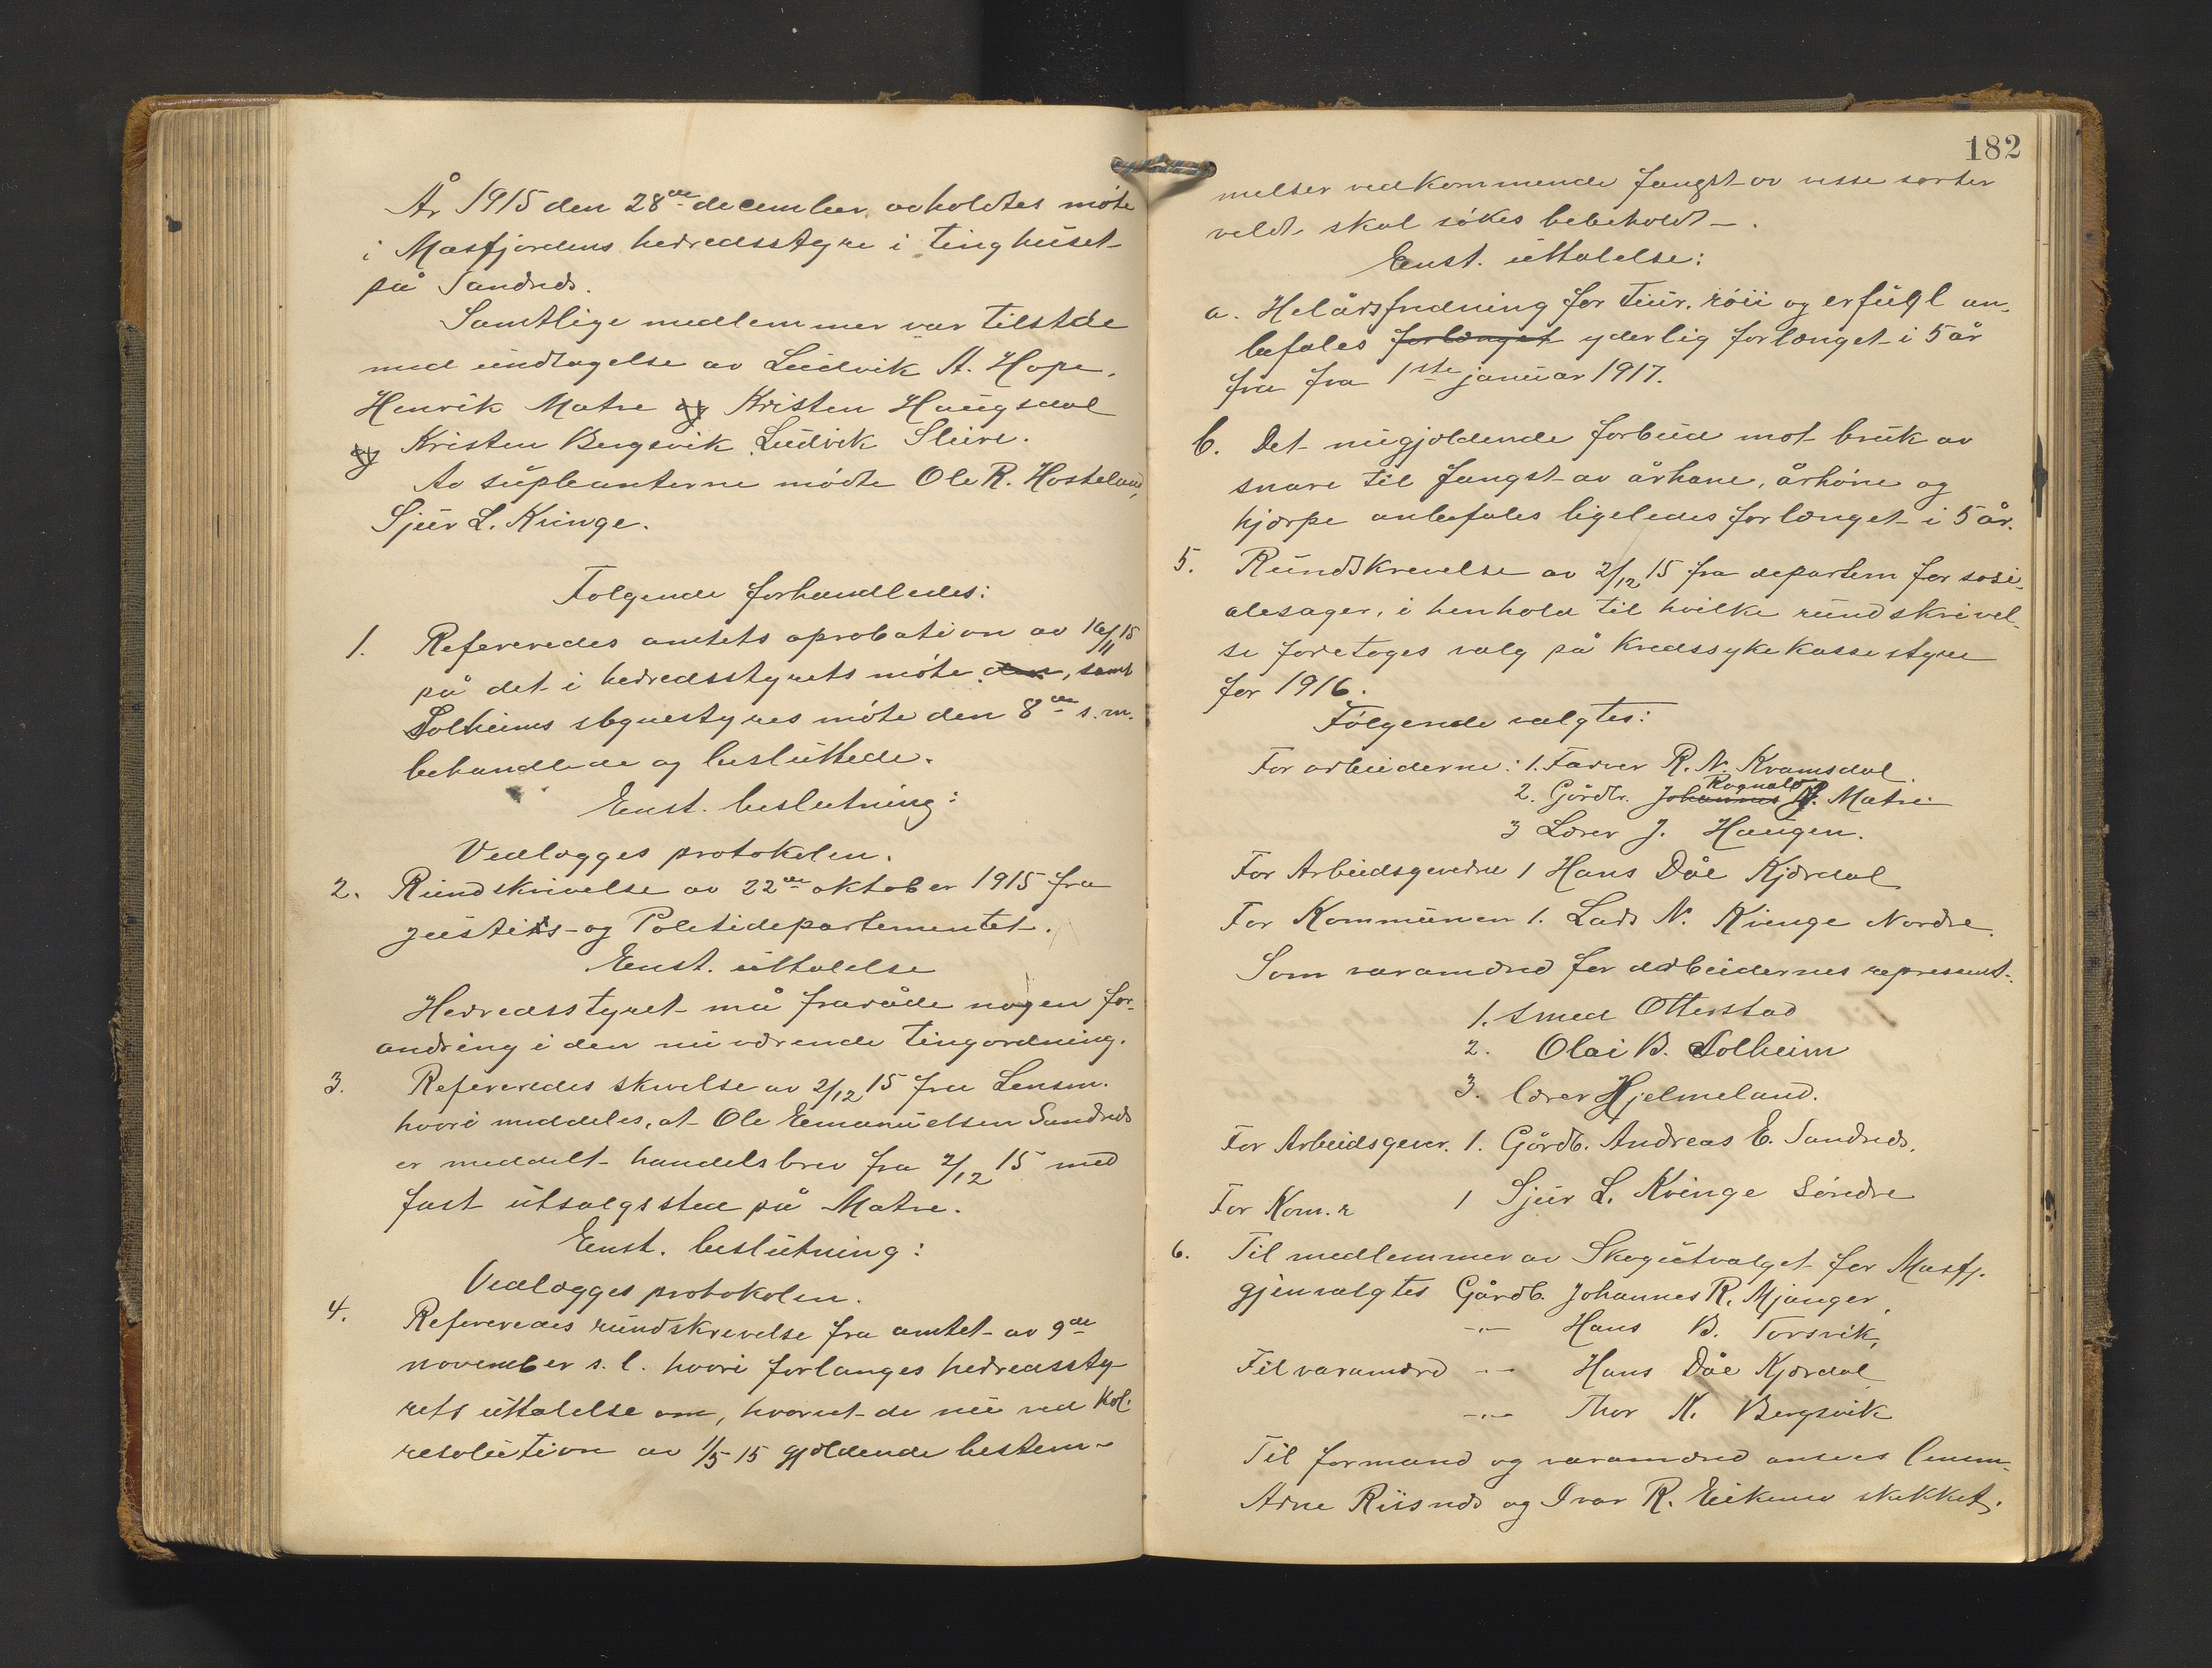 År 1915 den 28de december avholdtes møte
i Masfjordens herredsstyre i tinghuset
på Sandnes.
Samtlige medlemmer var tilstede
med undtagelse av Ludvik A. Hope,
Henrik Matre og Kristen Haugsdal
og Kristen Bergsvik, Ludvik Sleire.
Av supleanterne mødte Ole R. Hosteland,
Sjur L. Kvinge.
Følgende forhandledes:
1. Refereredes amtets aprobation av 16/11 15
på det i herredsstyrets møte den, samt
Solheims sognestyres møte den 8de s.m.
behandlede og besluttede.
Enst. beslutning:
Vedlægges protokolen.
2. Rundskrivelse av 22de oktober 1915 fra
justits- og Politidepartementet.
Enst. uttalelse
Herredsstyret må fraråde nogen for-
andring i den nuværende tingordning.
3. Refereredes skrivelse av 2/12 15 fra Lensm.
hvori meddeles, at Ole Emanuelsen Sandnes
er meddelt handelsbrev fra 2/12 15 med
fast utsalgssted på Matre.
Enst. beslutning:
Vedlægges protokolen.
4. Refereredes rundskrivelse fra amtet av 9de
november s. l. hvori forlanges herredssty-
rets uttalelse om, hvorvet de nu ved Kgl.
resolution av 1/5 15 gjældende bestem-
182
melser vedkommende fangst av visse sorter
veldt skal søkes bebeholdt.
Enst. uttalelse:
a. Helårsfredning for tiur, røii og erfugl an-
befales forlænget yderlig forlænget i 5 år
fra fra 1ste januar 1917.
b. Det nugjældende forbud mot bruk av
snare til fangst av århane, århøne og
hjærpe anbefales ligeledes forlænget i 5 år.
5. Rundskrivelse av 2/12 15 fra departem for sosi-
alesager, i henhold til hvilke rundskrivel-
se foretoges valg på Kredssykekassestyre
for 1916.
Følgende valgtes:
For arbeiderne: 1. Farver R. N. Kvamsdal.
Rognald
2. Gårdbr. Johannes A. Matre
3 Lærer J. Haugen.
For Arbeidsgiverne 1 Hans Dåe Kjærdal
For Kommunen 1. Lars N. Kvinge Nordre.
Som varamænd for arbeidernes represent.
1. Smed Otterstad
2. Olai B. Solheim
3. lærer Hjelmeland.
For Arbeidsgiver. 1. Gårdb. Andreas E. Sandnes.
For Kom. 1 Sjur L. Kvinge Søndre
6. Til medlemmer av Skogutvalget for Masfj.
gjenvalgtes Gårdb. Johannes R. Mjanger,
-"- Hans B. Torsvik,
Til varamænd -"- Hans Dåe Kjærdal
-"- Thor K. Bergsvik
Til formand og varamænd ansees lensm.
Arne Riisnes og Ivar R. Eikemo skikket.